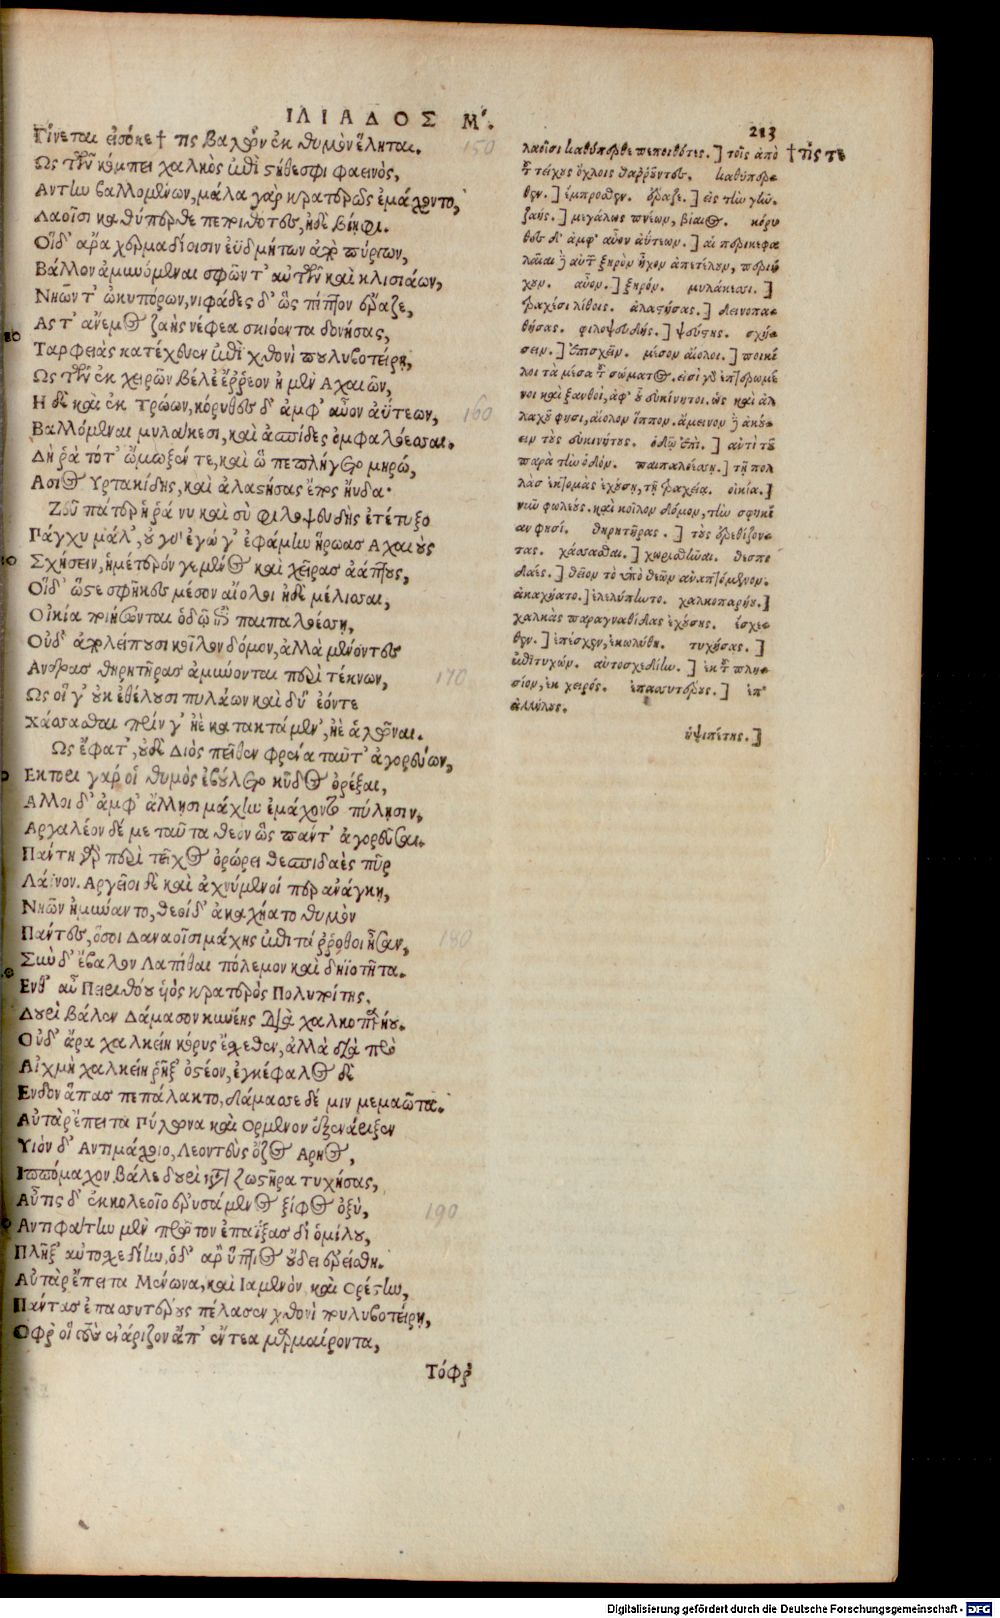 ΙΛΙΑΔΟΣ Μ.
213
Γίνεται εἰσόκε † τις βαλὼν ἐκ θυμὸν ἕληται.
Ως τῶν κόμπει χαλκὸς ἐπὶ στήθεσφι φαεινὸς,
Αντίω βαλλομένων, μάλα γὰρ κρατερῶς ἐμάχοντο,
Λαοῖσι καθύπερθε πεποιθότες, ἠδὲ βίηφι.
Οἵδ' αρα χερμαδίοισιν ἐϋδμήτων ἀπὸ πύργων,
Βάλλον ἀμυνόμεναι σφῶν τ' αὐτῶν καὶ κλισιάων,
Νηῶν τ' ὠκυπόρων, νιφάδες δ' ὣς πίπτον ἔραζε,
Ας τ' ανεμος ζαὴς νέφεα σκιόεντα δονήσας,
Ταρφειὰς κατέχευεν ἐπὶ χθονὶ πουλυβοτείρῃ,
Ως τῶν ἐκ χειρῶν βέλε' ἔῤῥεον ἠ μὲν Αχαιῶν,
Η δὲ καὶ ἐκ Τρώων, κόρυθες δ' ἀμφ' αὖον ἀΰτεων,
Βαλλόμεναι μυλάκεσι, καὶ ἀσπίδες ὀμφαλόεσσαι.
Δή ῥα τότ' ᾤμωξέν τε, καὶ ὣ πεπλήγετο μηρώ,
Ασιος Υρτακίδης, καὶ ἀλαστήσας ἔπος ηὔδα·
Ζεῦ πάτερ ἦ ῥά νυ καὶ σὺ φιλοψευδὴς ἐτέτυξο
Πάγχυ μάλ', οὐ γὰρ ἐγώ γ' ἐφάμην ἥρωας Αχαιοὺς
Σχήσειν, ἡμέτερόν γε μένος καὶ χεῖρας ἀάπτους,
Οἵδ' ὥστε σφῆκες μέσον αἴολοι ἠδὲ μέλισσαι,
Οἰκία ποιήσωνται ὁδῷ ἐπὶ παιπαλοέσσῃ,
Οὐδ' ἀπολείπουσι κοῖλον δόμον, ἀλλὰ μένοντες
Ανδρας θηρητῆρας ἀμύνονται περὶ τέκνων,
Ως οἵ γ' οὐκ ἐθέλουσι πυλάων καὶ δύ' ἐόντε
Χάσσασθαι πρίν γ' ἠὲ κατακτάμεν, ἠὲ ἁλῶναι.
Ως ἔφατ', οὐδὲ Διὸς πεῖθεν φρένα ταῦτ' ἀγορεύων,
Εκτορι γάρ οἱ θυμὸς ἐβούλετο κῦδος ὀρέξαι,
Αλλοι δ' ἀμφ' ἄλλῃσι μάχην ἐμάχοντο πύλῃσιν,
Αργαλέον δέ με ταῦτα θεὸν ὣς παντ' ἀγορεῦσαι.
Πάντῃ γὰρ περὶ τεῖχος ὀρώρει θεσπιδαὲς πῦρ
Λάϊνον. Αργεῖοι δὲ καὶ ἀχνύμενοί περ ἀνάγκῃ,
Νηῶν ἠμύναντο, θεοὶ δ' ἀκαχήατο θυμὸν
Πάντες, ὅσοι Δαναοῖσι μάχης ἐπιτάῤῥοθοι ἦσαν,
Σὺν δ' ἔβαλον Λαπίθαι πόλεμον καὶ δηϊοτῆτα.
Ενθ' αὖ Πειριθόου υἱὸς κρατερὸς Πολυποίτης.
Δουρὶ βάλεν Δάμασον κυνέης διὰ χαλκοπαρῄου.
Οὐδ' ἄρα χαλκείη κόρυς ἔσχεθεν, ἀλλὰ διὰ πρὸ
Αἰχμὴ χαλκείη ῥῆξ' ὀστέον, ἐγκέφαλος δὲ
Ενδον ἅπας πεπάλακτο, δάμασσε δέ μιν μεμαῶτα.
Αὐτὰρ ἔπειτα Πύλωνα καὶ Ορμενον ἐξενάριξεν
Υιὸν δ' Αντιμάχοιο, Λεοντεὺς ὄζος Αρηος,
Ιππόμαχον βάλε δουρὶ κατὰ ζωστῆρα τυχήσας,
Αὖτις δ' ἐκ κολεοῖο ἐρυσάμενος ξίφος ὀξὺ,
Αντιφάτην μὲν πρῶτον ἐπαΐξας δι' ὁμίλου,
Πλῆξ' αὐτοσχεδίην, ὁδ' αρ' ὕπτιος οὔδει ἐρείσθη.
Αὐτὰρ ἔπειτα Μένωνα, καὶ Ιαμενὸν καὶ Ορέστην,
Πάντας ἐπασσυτέρους πέλασεν χθονὶ πουλυβοτείρῃ,
Οφρ' οἱ τοὺς ἐνάριζον ἄπ' ἔντεα μαρμαίροντα,
Τόφρ'
λαοῖσι καθύπερθε πεποιθότες.] τοῖς ἀπὸ
† τίς τε
τοῦ τείχους ὄχλοις θαῤῥοῦντες. καθύπερ-
θεν.] ἔμπροσθεν. ἔραζε.] εἰς τὴν γῆν.
ζαής.] μεγάλως πνέων, βίαιος. κόρυ
θες δ' ἀμφ' αὖον ἀΰτεων.] αἱ περικεφα
λαῖαι ξηρὸν ἦχον ἀπετέλουν, περιή
χουν. αὖον.] ξηρόν. μυλάκεσσι.]
τραχέσι λίθοις. ἀλαστήσας.] δεινοπα-
θήσας. φιλοψευδής.] ψεύστης. σχή-
σειν.] ἐπισχεῖν. μέσον αἰόλοι.] ποικί
λοι τὰ μέσα τοῦ σώματος. εἰσὶ γὰρ
νοι καὶ ξανθοί, ἀφ' οὗ εὐκίνητοι. ὡς καὶ ἀλ
λαχοῦ φησι, αἰόλον ἵππον. ἄμεινον ἀκού-
ειν τοὺς εὐκινήτους. ὁδῷ ἐπὶ.] αὐτὶ τοῦ
παρὰ τὴν ὁδόν. παιπαλοέσσῃ.] τῇ πολ
λὰς ἐκτομὰς ἐχούσῃ, τῇ τραχείᾳ. οἰκία.]
νῦν φωλεούς. καὶ κοῖλον δόμον, τὴν σφηκί
αν φησί. θηρητῆρας.] τοὺς ἐρεθίζον-
τας. χάσσασθαι.] χωρισθῆναι. θεσπι
δαές.] θεῖον τὸ ὑπὸ θεῶν ἀναπτόμενον.
ἀκαχήατο.] ἐλελύπηντο. χαλκοπαρῄου.]
χαλκᾶς παραγναθίδας ἐχούσης. ἔσχε-
θεν.] ἐπέσχεν, ἐκωλύθη. τυχήσας.]
ἐπιτυχών. αὐτοσχεδίην.] ἐκ τοῦ πλη-
σίον, ἐκ χειρός. ἐπασσυτέρους.] ἐπ'
ἀλλήλους.
ὑψιπέτης.]
150
160
170
180
190
Digitalisierung gefördert durch die Deutsche Forschungsgemeinschaft - DFG